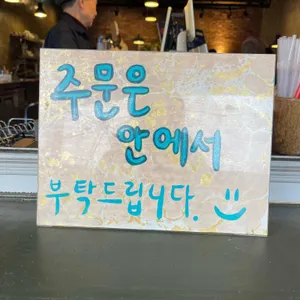 주문은
안에서
부탁드립니다.